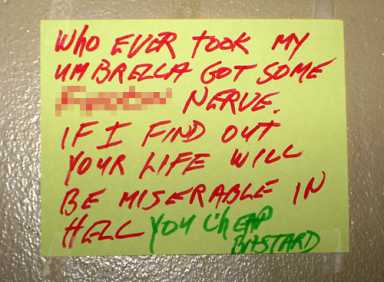 WHO EVER TOOK MY
UMBRELLA GOT SOME
NERVE.
IF I FIND OUT
YOUR LIFE WILL
BE MISERABLE IN
HELL YOU CHEAP
BASTARD